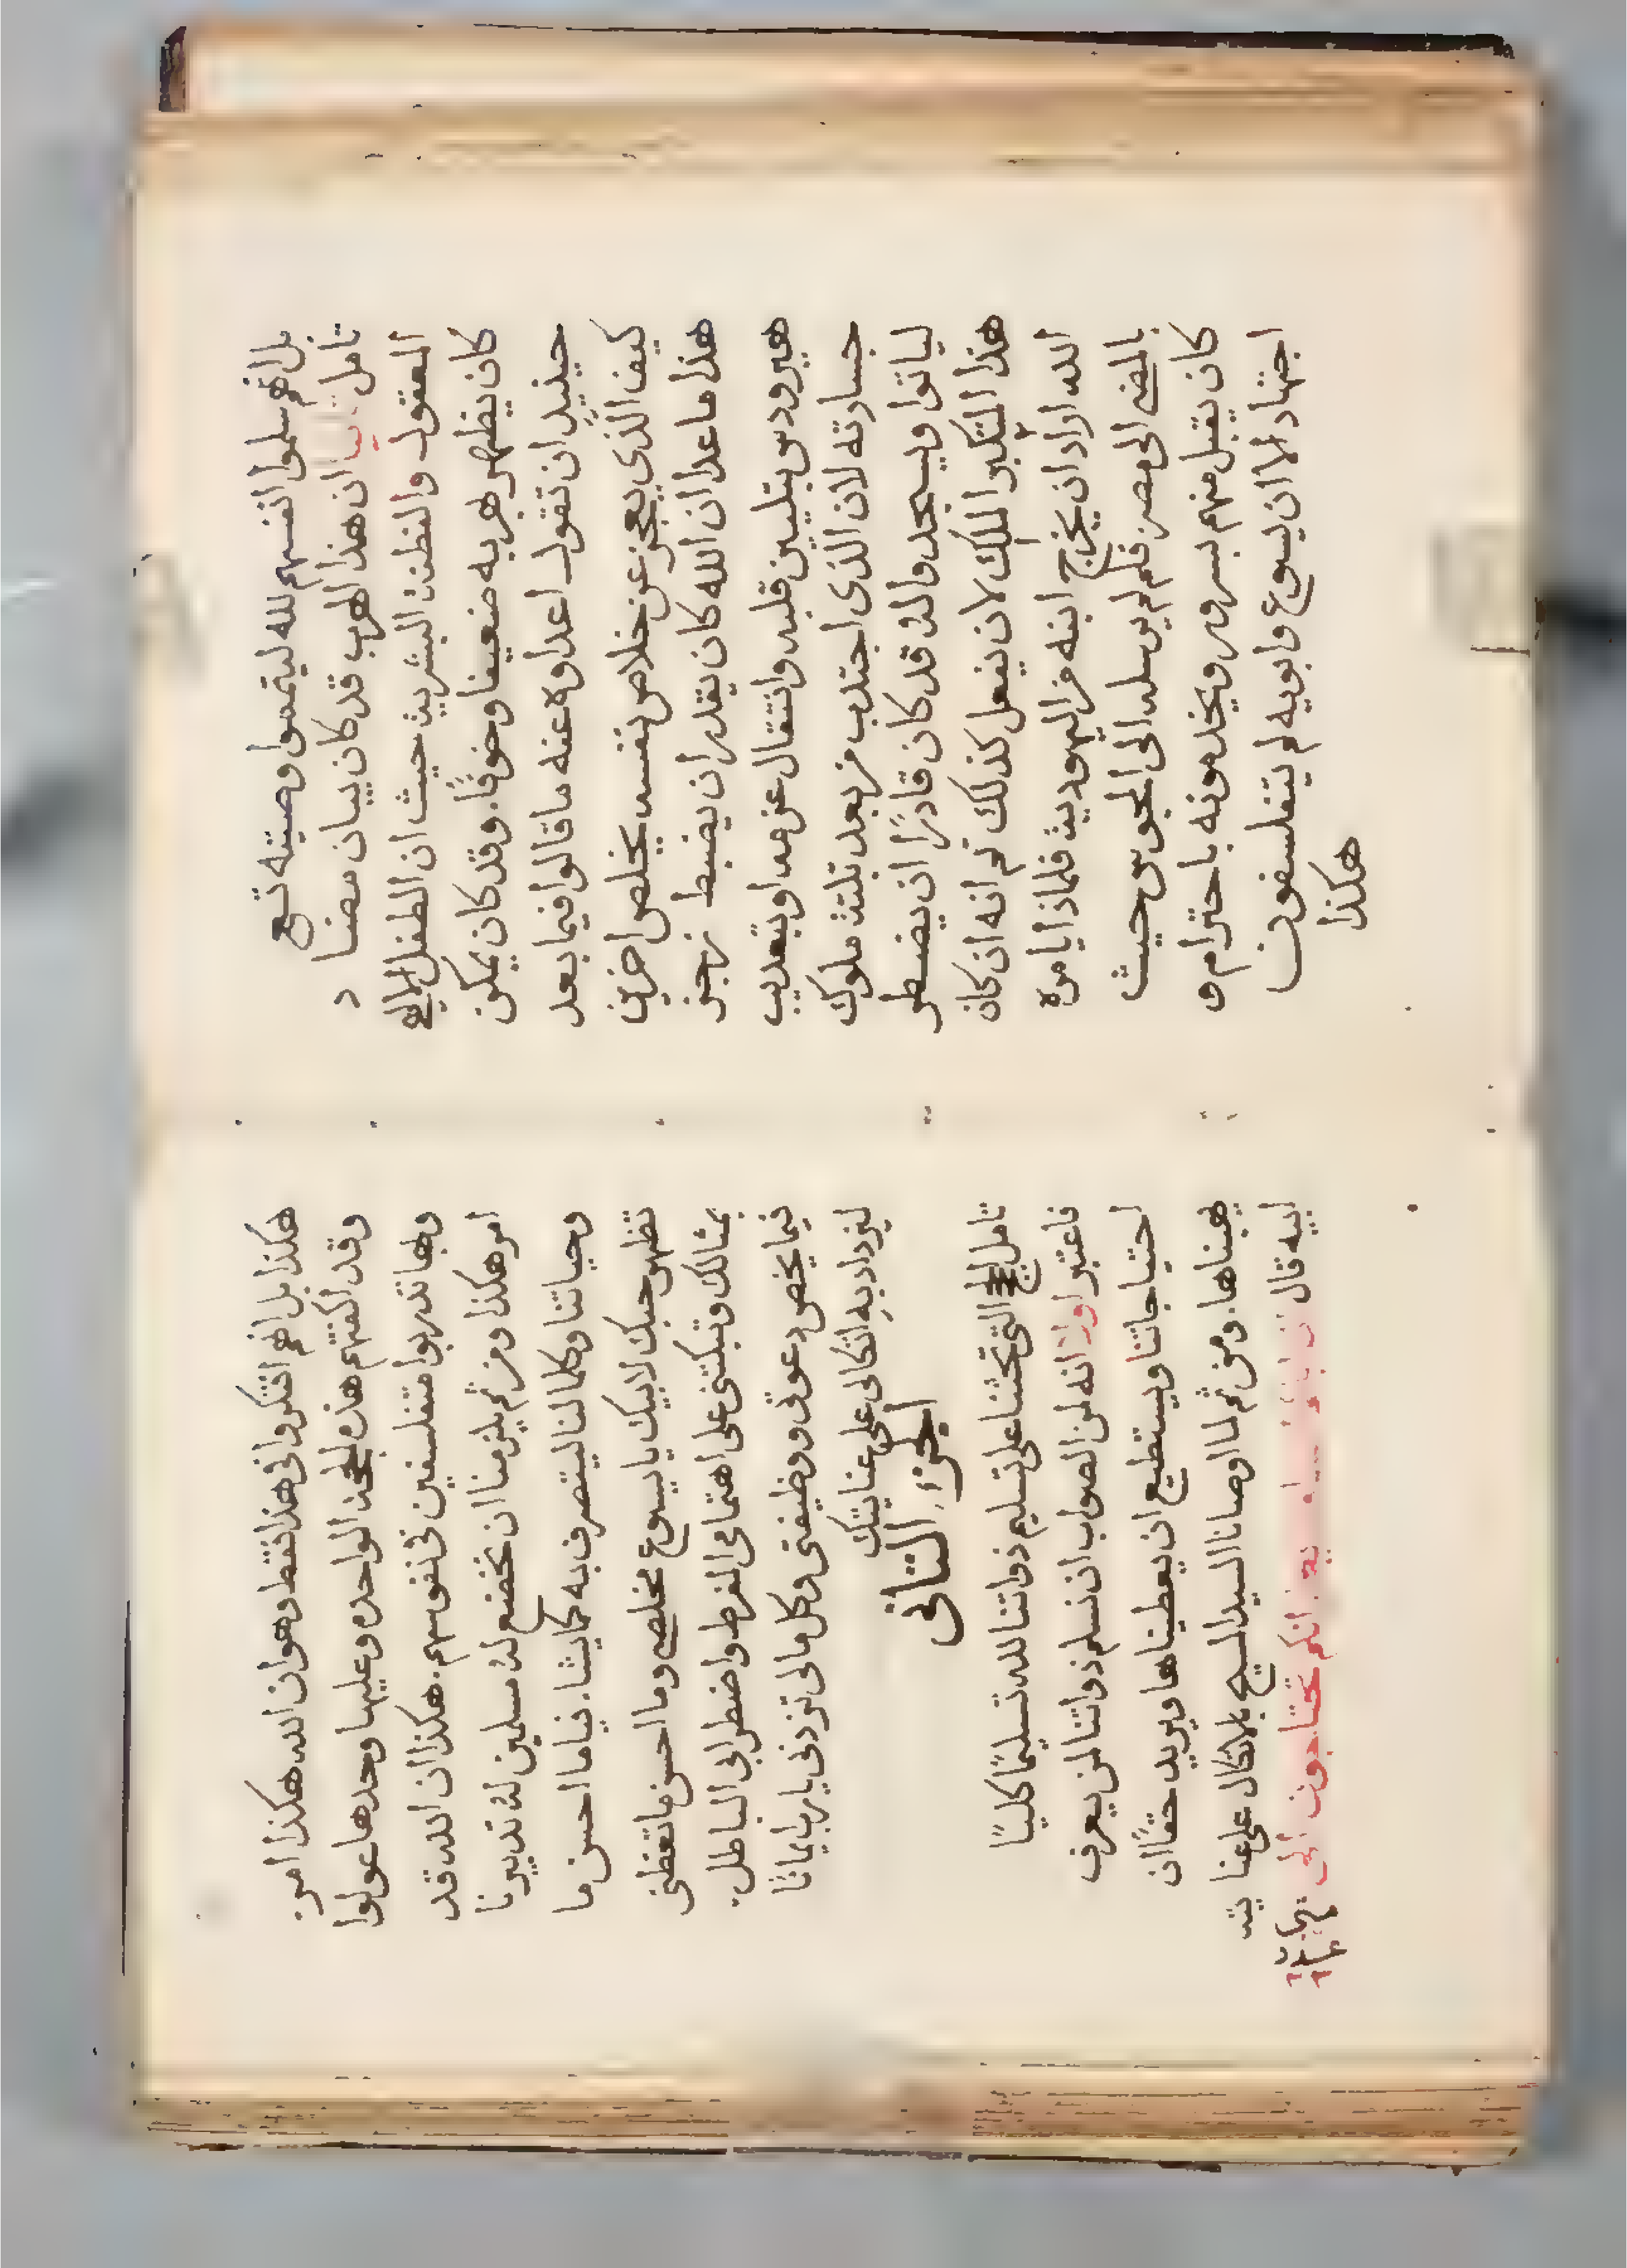 بل انهم سلموا انفسهم لله ليتمموا وصيته تع
تامل ثانيا ان هذا الهرب قد كان يبان مضاد
المعقول والنظن البشريه حيث ان الطفل الالهي
كان يظهر بهربه ضعيفا وخوفًا. وقد كان يمكن
حينيذٍ ان تقول اعداوه عنه ما قالوا فيما بعد
كيف الذي يعجز عن خلاص نفسه يخلص اخرين
هذا ما عدا ان الله كان يقدر ان يضبط نهجز
هيرودس بتليين قلبه وانتقال عزمه او بتعذيب
جسارته لان الذي اجتدب من بعد تلتة ملوك
لياتوا ويسجدوا له قد كان قادرًا ان يضطر
هذا المتكبر الملك لان يفعل كذلك تم انه ان كان
الله اراد ان يخرج ابنه من اليهوديه فلماذا يامره
بالمضى الى مصر فلم لم يرسله الى المجوس حيث
كان يقبل منهم بسرور ويخدمونه باحترام و
اجتهاد الا ان يسوع وابويه لم يتفلسفون
هكذا
هكذا بل انهم افتكروا في هذا فقط وهو ان الله هكذا امر.
وقد اكفتهم هذه الحجة الواحده وعليها وحدها عولوا
وبها تدربوا متفلسفين في نفوسهم. هكذا ان الله قد
امر هكذا ومن ثم يلزمنا ان نخضع له مسلمين له تدبيرنا
وحياتنا وكلما لنا ليتصرف به كما يشاء فيا ما احسن ما
تظهر حبك لابيك يا يسوع مخلصي وما احسن ما تعظني
بمثالك وتبكتني على اهتمامي المفرط واضطرابي الباطل.
فيما يخص دعوتي ووظيفتي وكل مالي تزدني يا رب ايمانًا
ليزداد به اتكالي على عنايتك
الجزء الثاني
تامل الحجج التي تحثنا على تسليم ذواتنا لله تسليمًا كليًا
فاعتبر اولا انه لمن الصواب ان نسلم ذواتنا لمن يعرف
احتياجاتنا ويستطيع ان يعطيناها ويريد حقًا ان
يهبناها. ومن ثم لما اوصانا السيد المسيح بالاتكال على عناية
ابيه قال ان اباكم السماوي يعلم انكم تحتاجون الى